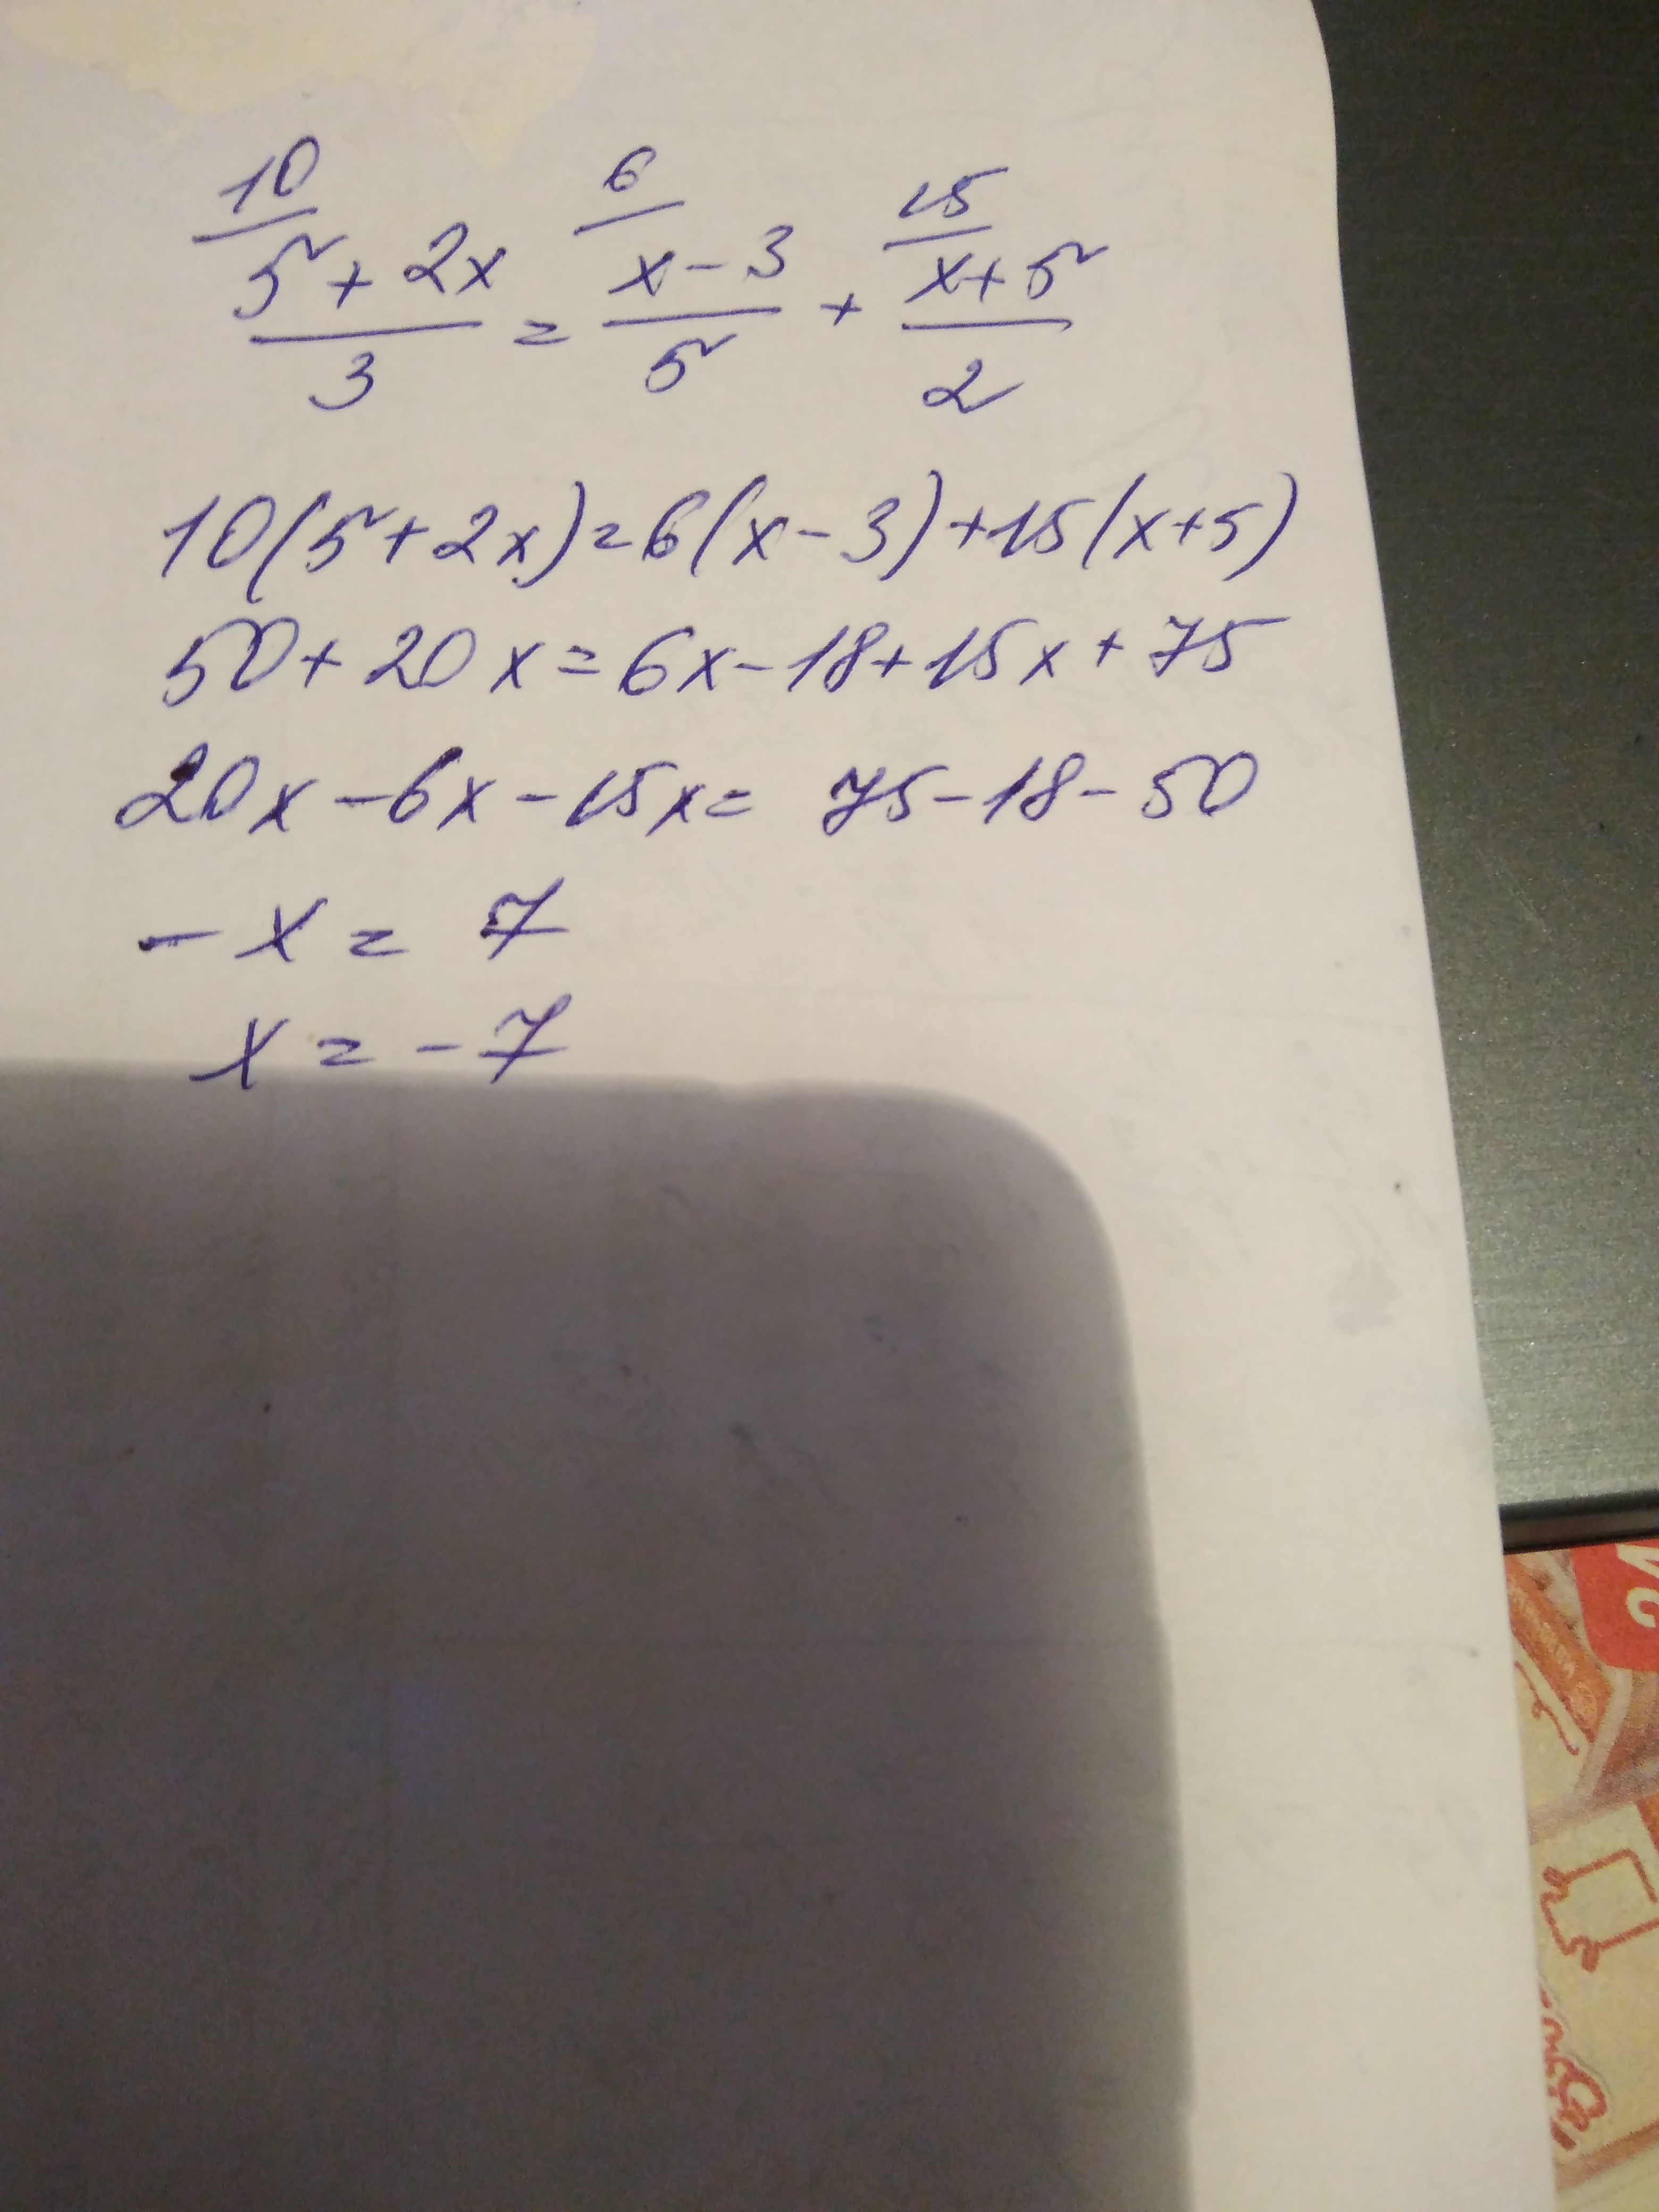 10/ 6/ 15/
(5+2x)/3 = (x-3)/5 + (x+5)/2
10(5+2x)=6(x-3)+15(x+5)
50+20x=6x-18+15x+75
20x-6x-15x= 75-18-50
-x = 7
x = -7